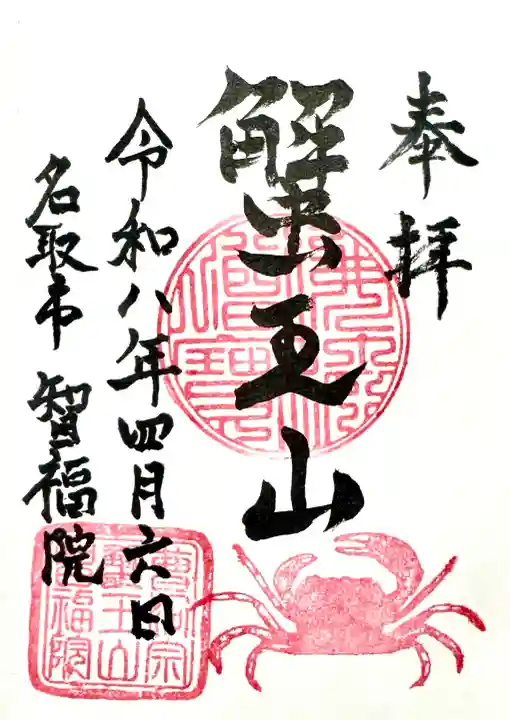 奉拝
蟹王山
佛法僧寳
令和八年四月六日
名取市 智福院
曹洞宗
蟹王山
智福院